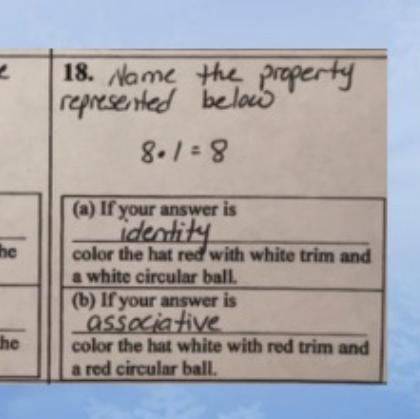 e
18. Name the property
represented below
8 • 1 = 8
(a) If your answer is
identity
he
color the hat red with white trim and
a white circular ball.
(b) If your answer is
associative
he
color the hat white with red trim and
a red circular ball.